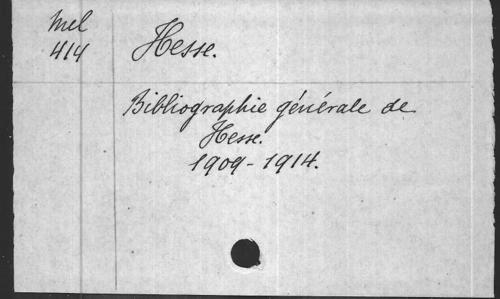 Mel
414
Hesse.
Bibliographie générale de
Hesse.
1909-1914.